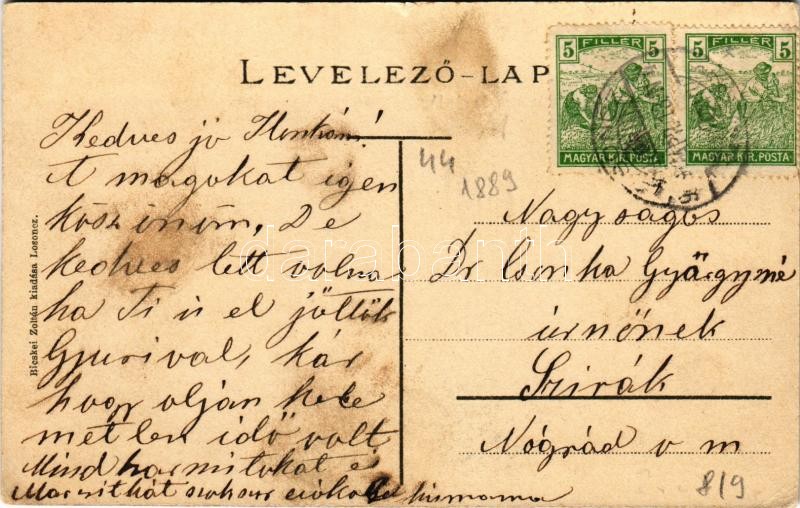 LEVELEZŐ-LAP
5 FILLÉR 5
MAGYAR KIR. POSTA
5 FILLÉR 5
MAGYAR KIR. POSTA
Kedves jó
A magokat igen
köszönöm, De
kedves lett volna
ha Ti is el jöttök
Gyurival, kár
hogy olyan
metlen idő volt
Mind hármitokat
44
1889
Nagyságos
Dr Csonka Györgyné
úrnőnek
Szirák
Nógrád v m
8/9
Bicskei Zoltán kiadása Losoncz.
darabanth